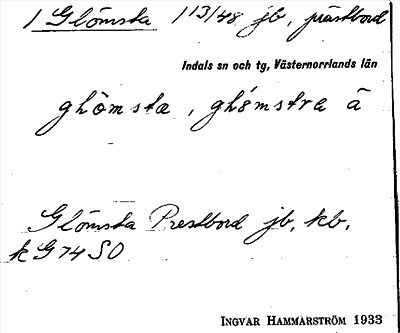 1 Glömsta 1 13/48 jb, prästbord
Indals sn och tg, Västernorrlands län
ghömsta, ghömstra ä
Glömsta Prestbord jb, kb,
k G 74 SO
INGVAR HAMMARSTRÖM 1933